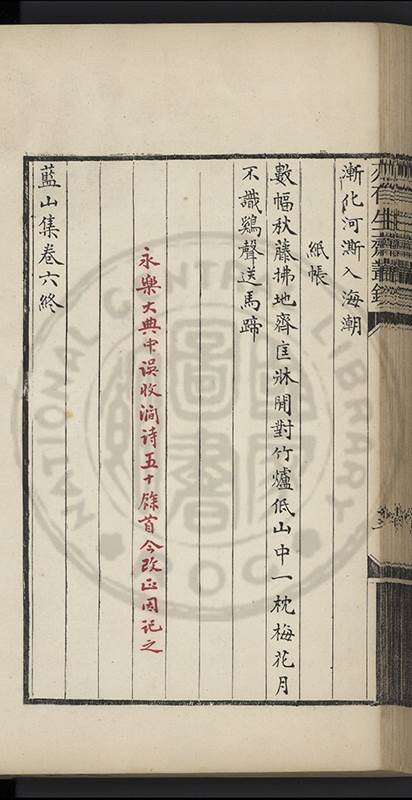 漸化河澌入海潮
紙帳
數幅秋藤拂地齊匡牀閒對竹爐低山中一枕梅花月
不識鷄聲送馬蹄
永樂大典中誤收澗詩五十餘首今改正因記之
藍山集卷六終
NATIONAL CENTRAL LIBRARY
ROC